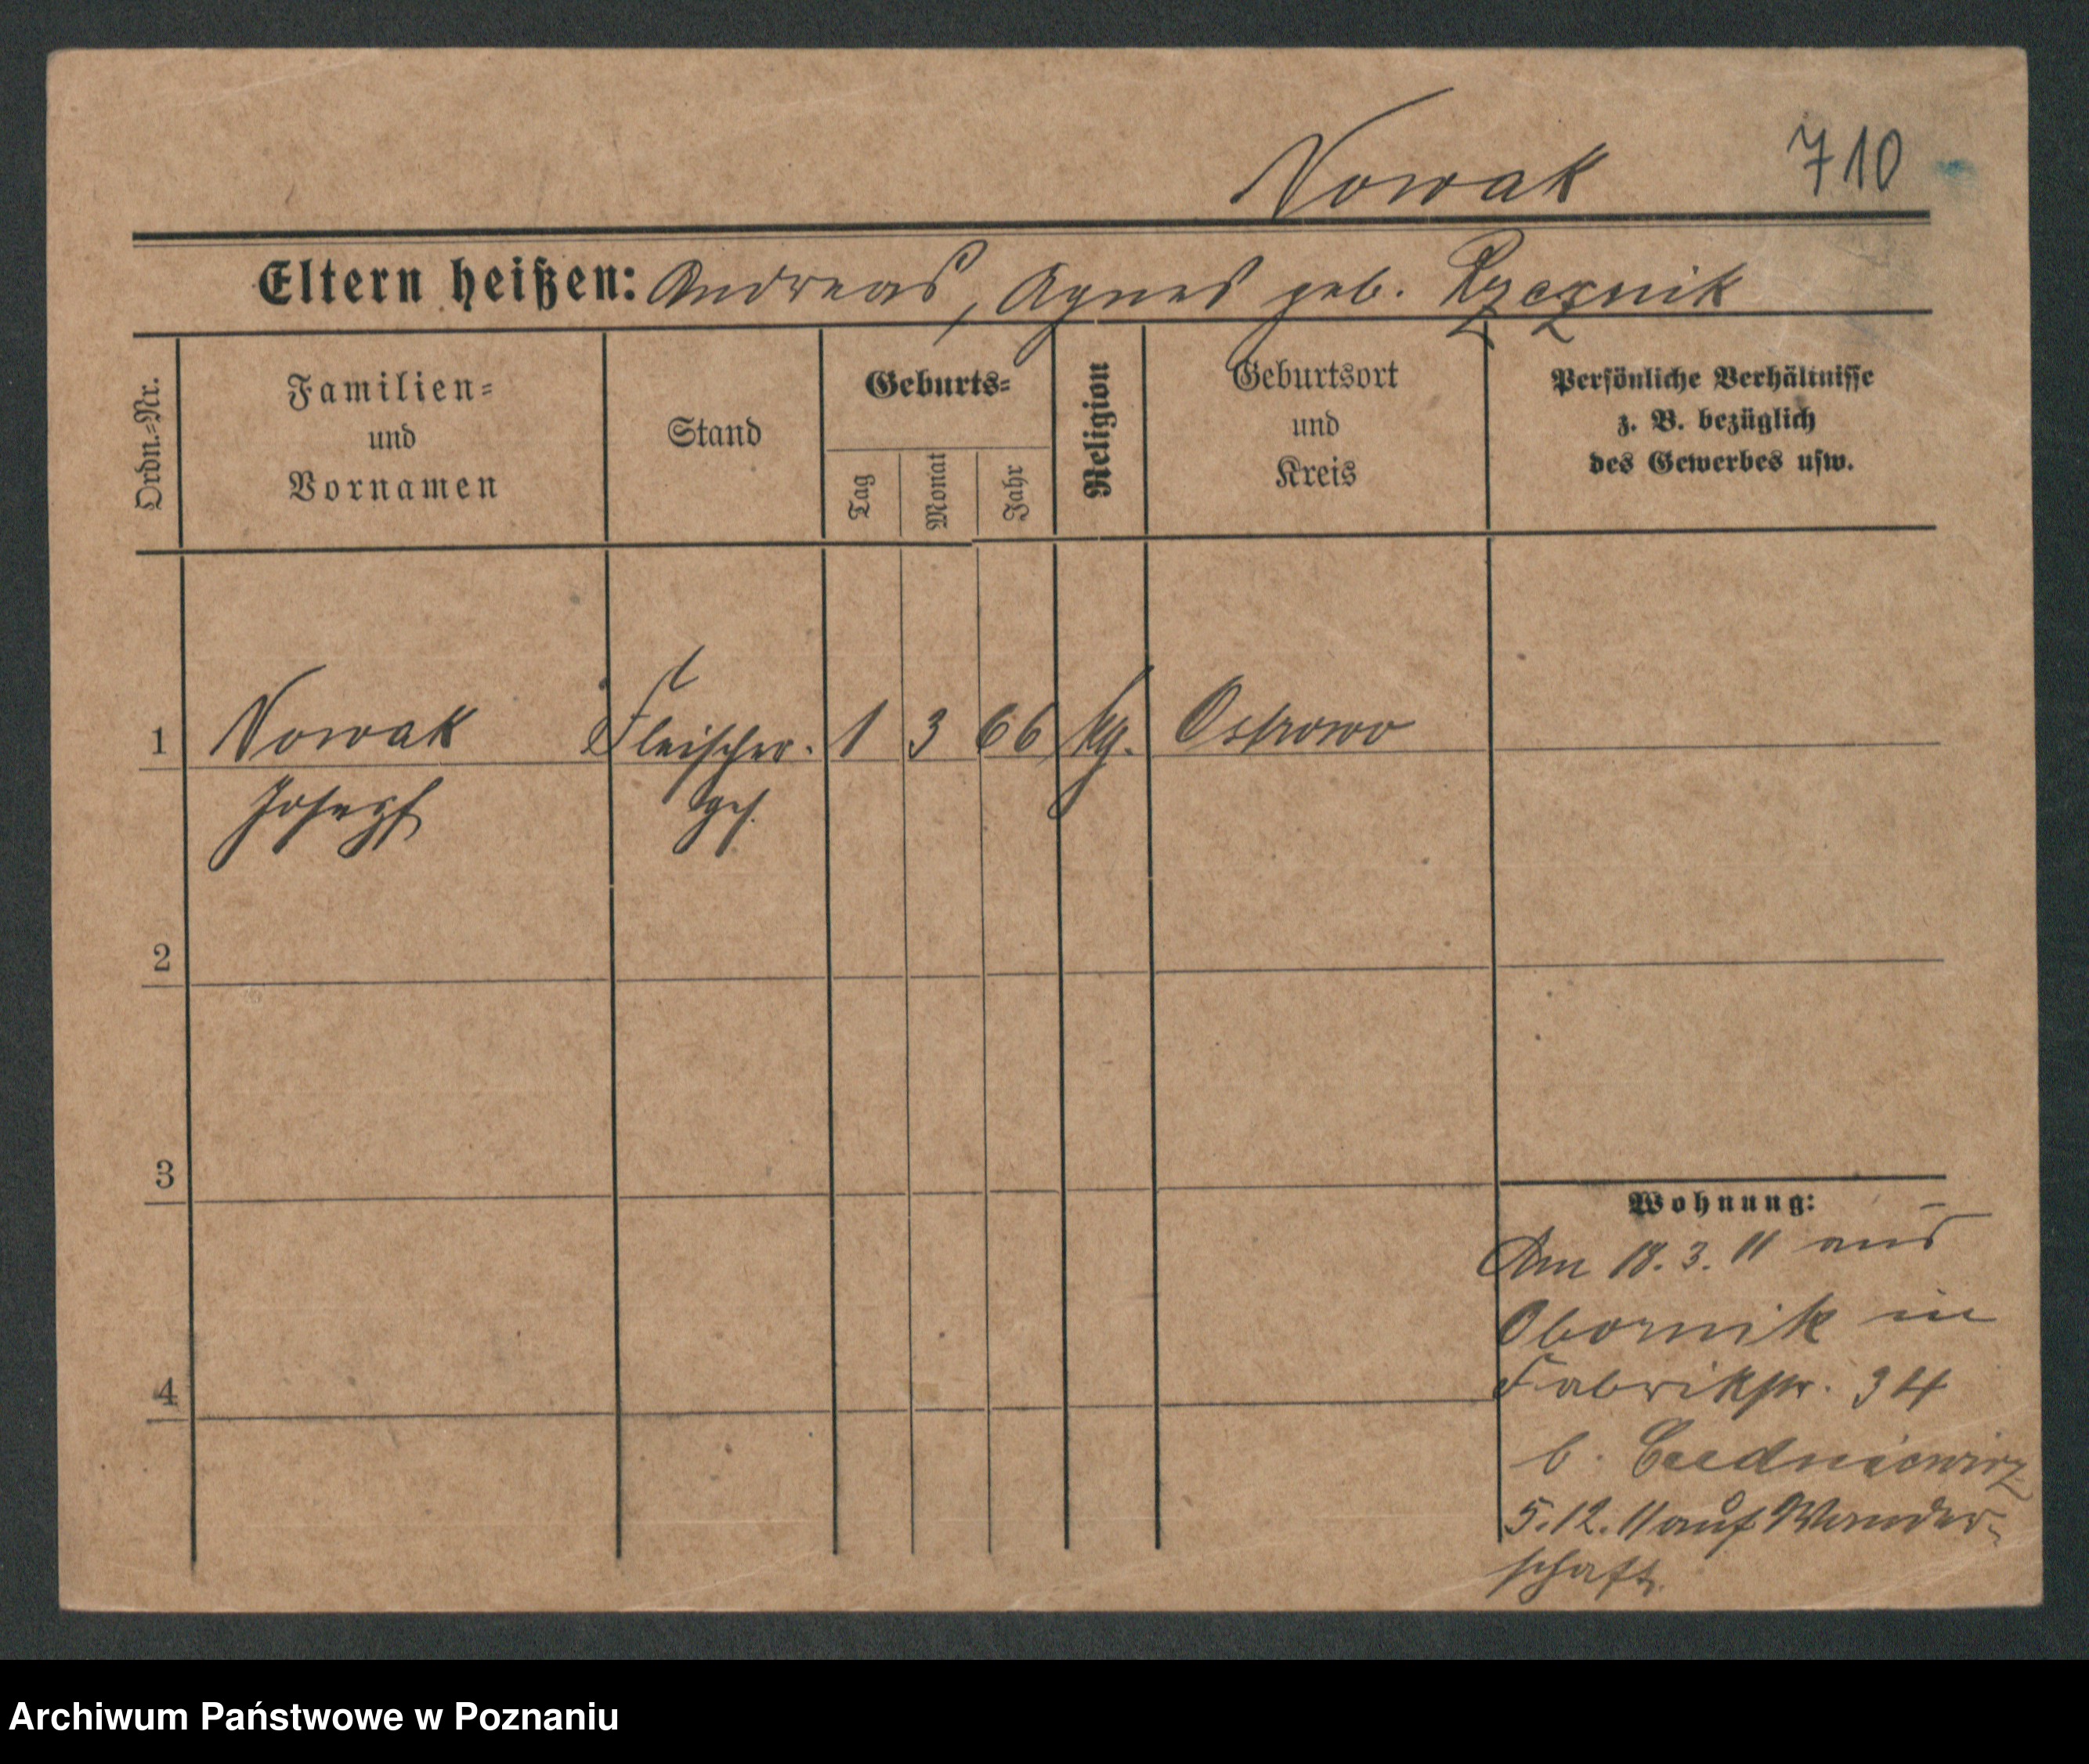 Nowak 710
Eltern heißen: Andreas, Agnes geb.
Ordn.=Nr.
Familien=
und
Vornamen
Stand
Geburts=
Tag
Monat
Jahr
Religion
Geburtsort
und
Kreis
Persönliche Verhältnisse
z. B. bezüglich
des Gewerbes usw.
1 Nowak Fleischer. 1 3 66 kg. Ostrowo
Josepf ges.
2
3
4
Wohnung:
Am 18. 3. 11 aus
Obornik in
Fabrikstr. 34
b.
5. 12. 11 auf Wander-
schaft.
Archiwum Państwowe w Poznaniu